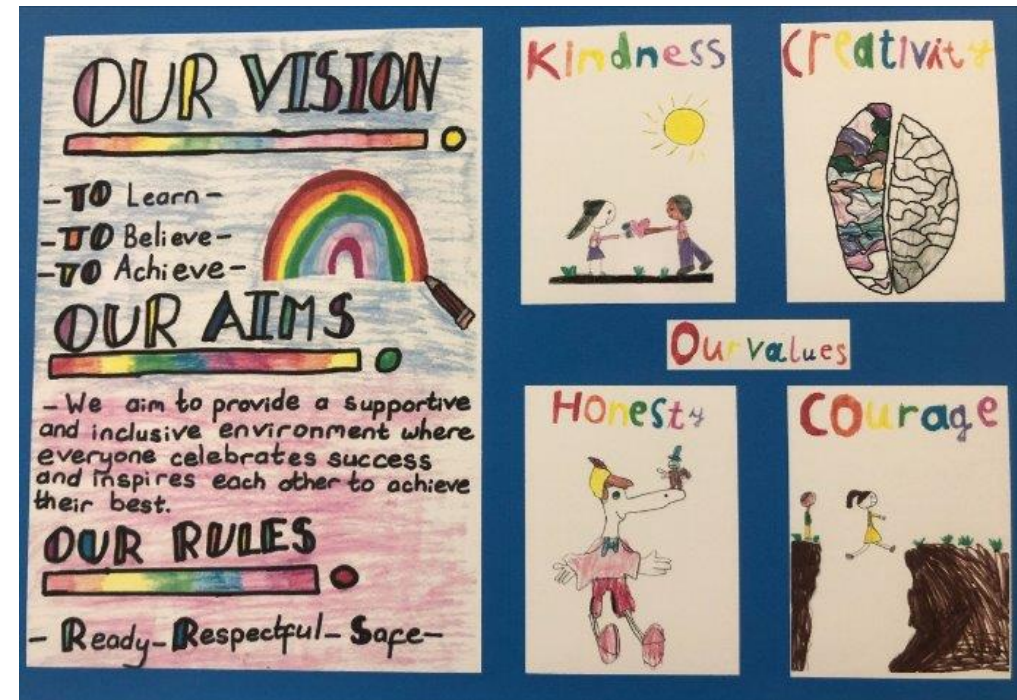 OUR VISION
- TO Learn -
- TO Believe -
- TO Achieve -
OUR AIMS
- We aim to provide a supportive
and inclusive environment where
everyone celebrates success
and inspires each other to achieve
their best.
OUR RULES
- Ready - Respectful - Safe -
Kindness
Creativity
Our values
Honesty
COurage